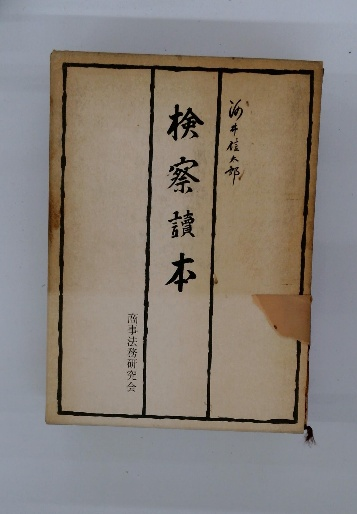 河井信太郎
検察讀本
商事法務研究会